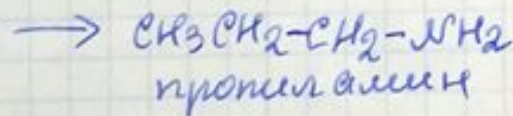 → CH3CH2-CH2-NH2
пропиламин